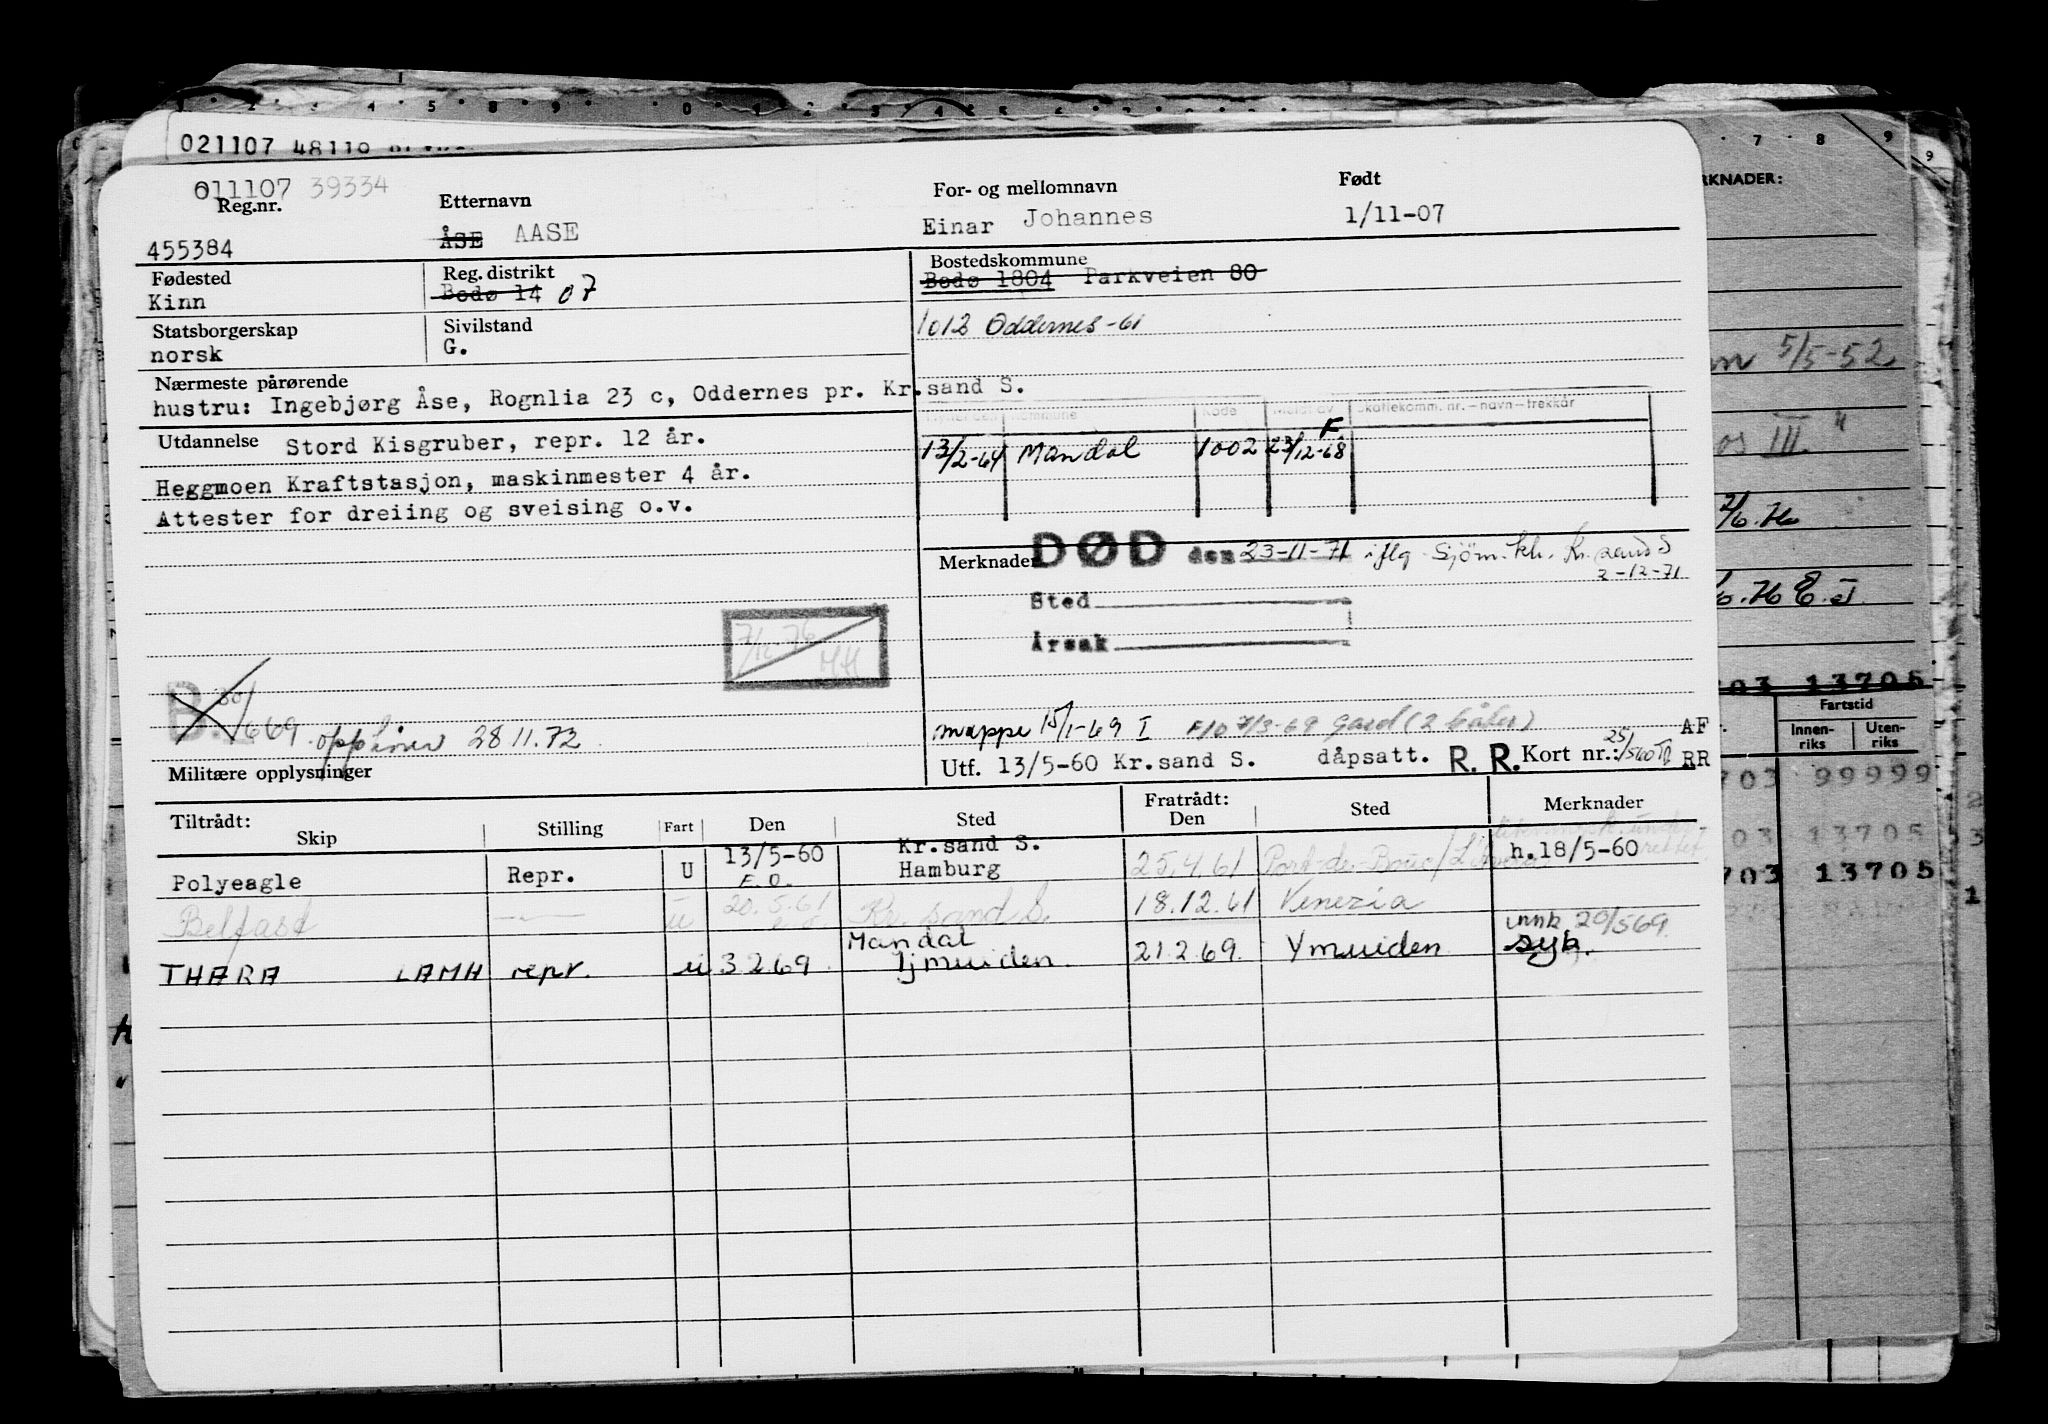 021107 48110
011107 39334
Reg.nr.
Etternavn
For- og mellomnavn
Født
455384
ÅSE AASE
Einar Johannes
1/11-07
Fødested
Kinn
Reg. distrikt
Bodø 14 07
Bostedskommune
Bodø 1804 Parkveien 80
Statsborgerskap
norsk
Sivilstand
G.
1012 Oddernes-61
Nærmeste pårørende
hustru: Ingebjørg Åse, Rognlia 23 c, Oddernes pr. Kr.sand S.
Kode
Skattekomm. nr. - navn - trekkår
Utdannelse Stord Kisgruber, repr. 12 år.
Heggmoen Kraftstasjon, maskinmester 4 år.
Attester for dreiing og sveising o.v.
13/2-64 Mandal 1002 23/12-68 F
Merknader DØD den 23-11-71 iflg. Sjöm.kh. Kr.sand S
2-12-71
Sted
Årsak
7/12-76
HH
B. 30/669 opphører 28 11.72
mappe 15/1-69 I F/O 7/3-69 Gard (2 båter)
Militære opplysninger
Utf. 13/5-60 Kr.sand S. dåpsatt. R. R. Kort nr.: 25/560
AF
RR
Tiltrådt:
Skip
Stilling
Fart
Den
Sted
Fratrådt:
Den
Sted
Merknader
Polyeagle Repr. U 13/5-60 Kr.sand S. 25.4.61 Port-de-Bouc h.18/5-60
E.O. Hamburg
Belfast —"— u 20.5.61 Kr. sand S. 18.12.61 Venezia
THARA LAMH repr. u 3 2 69 Mandal 21.2.69. Ymuiden innk 20/569.
Ijmuiden. syk.
RKNADER:
5/5-52
III. "
2/6. H
H E. J
703 13705
Fartstid
Innen-
riks
Uten-
riks
703 99999
703 13705
703 13705